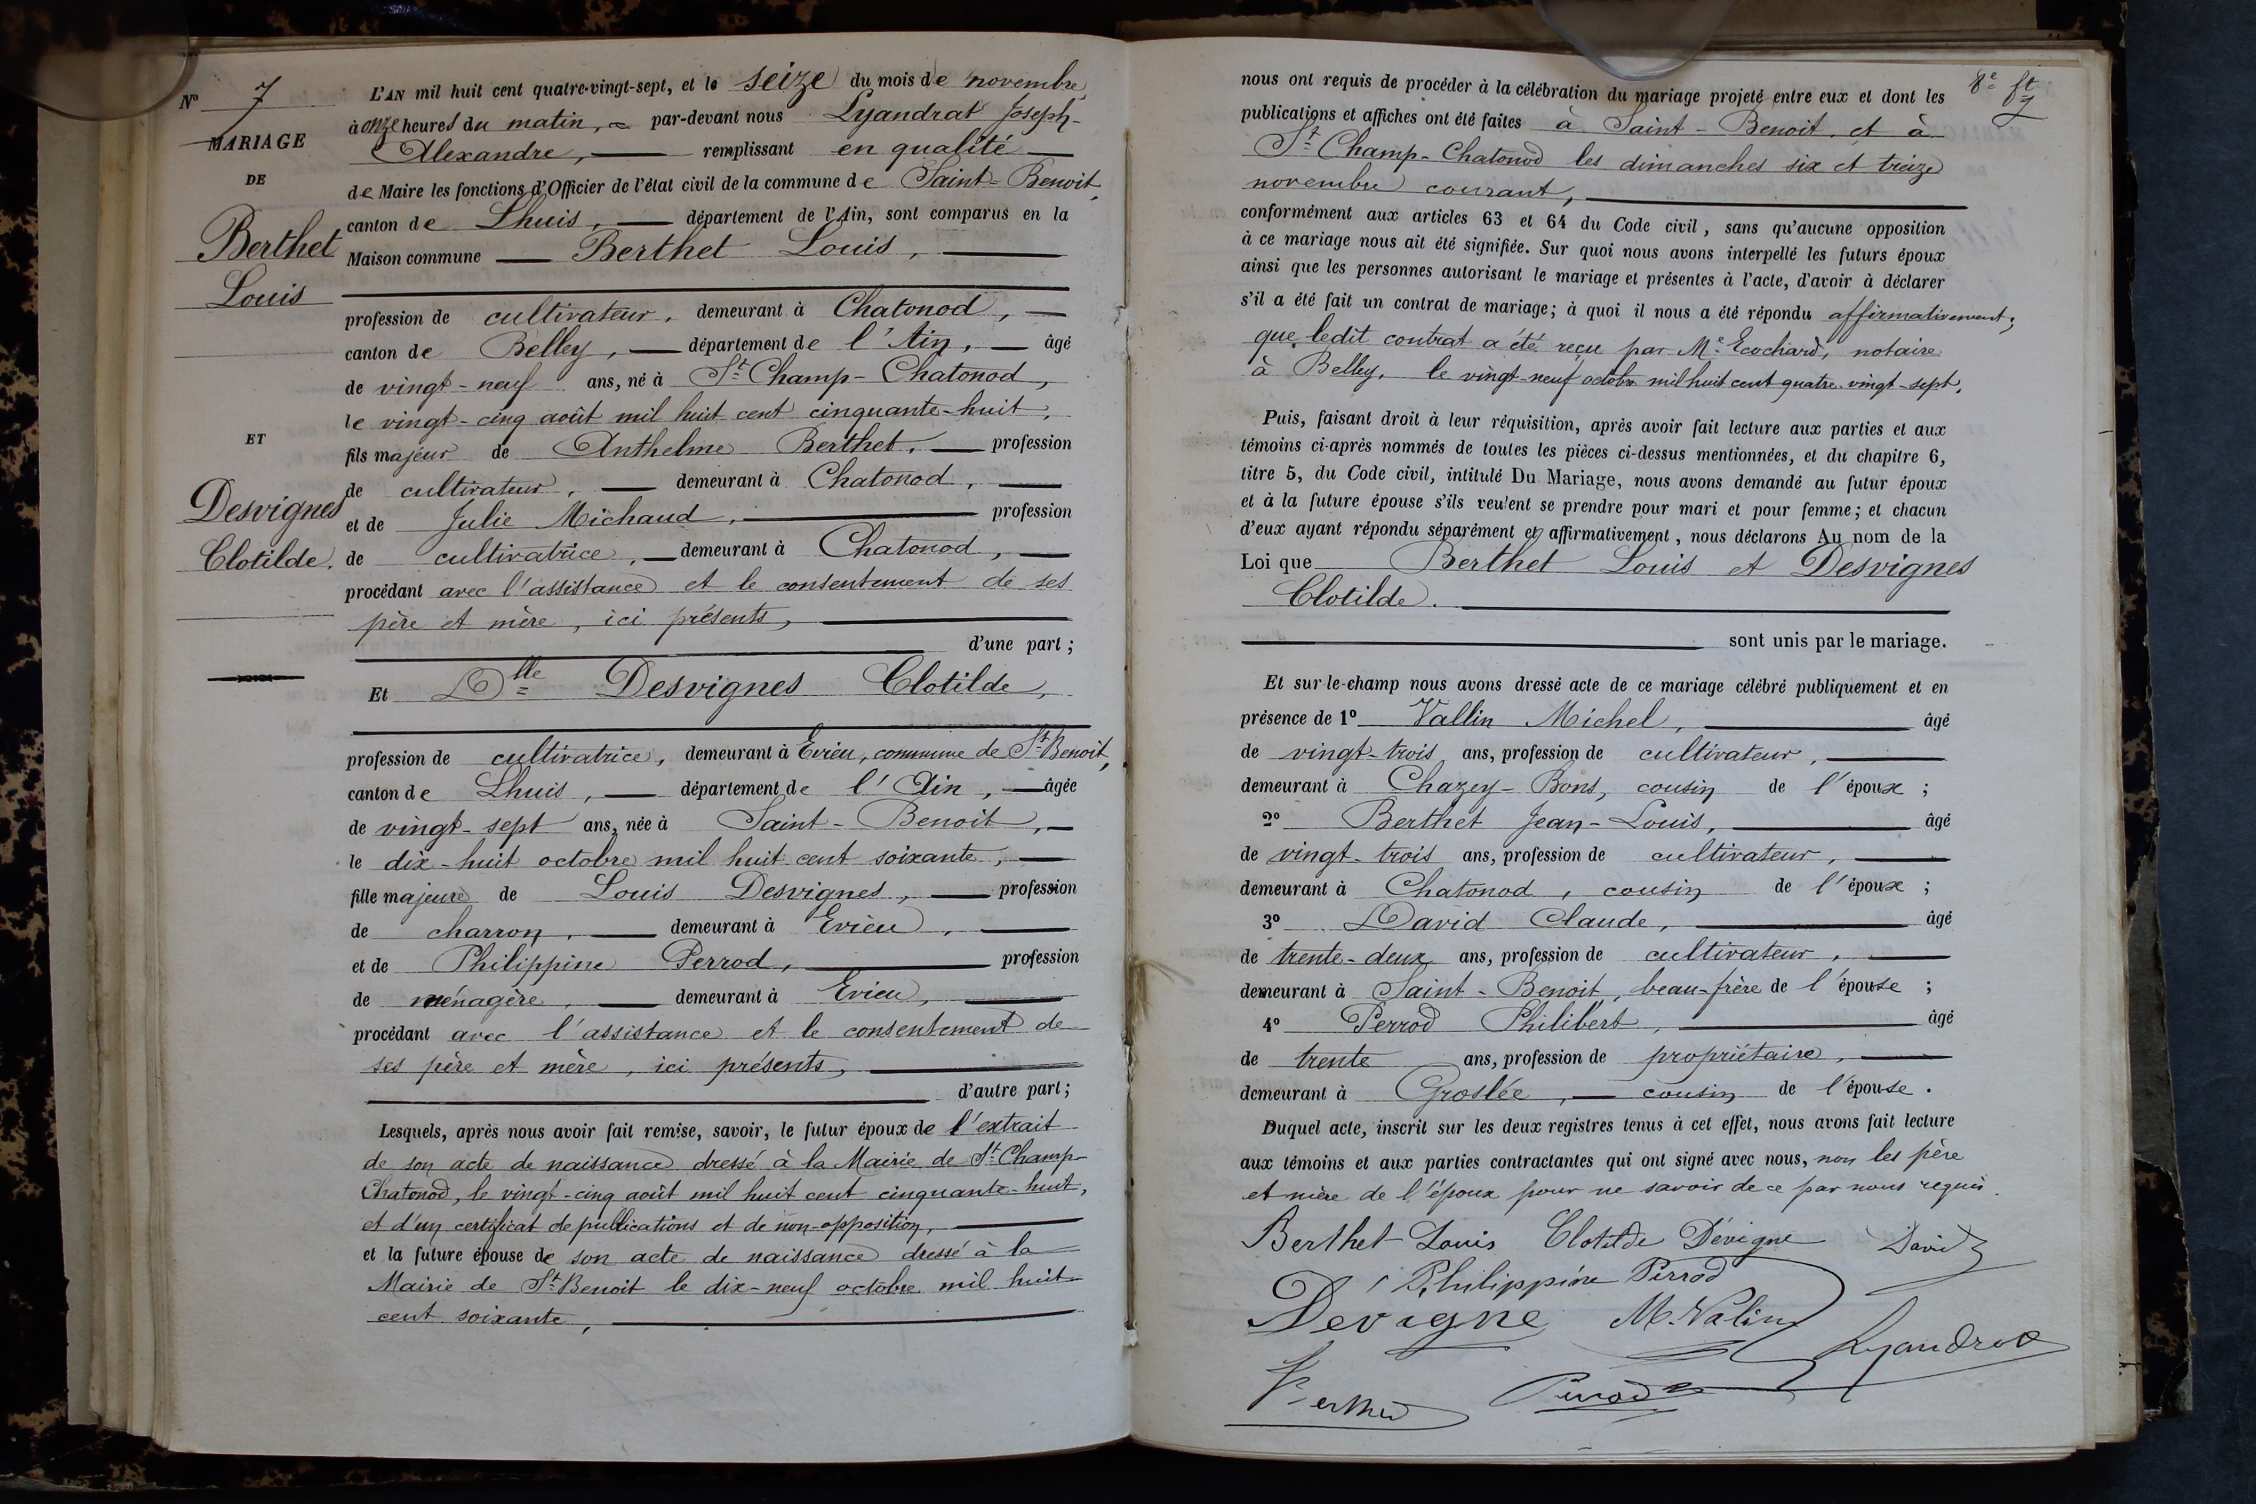 N° 7
MARIAGE
DE
Berthet
Louis
ET
Desvignes
Clotilde.
L'AN mil huit cent quatre-vingt-sept, et le seize du mois de novembre
à onze heures du matin, par-devant nous Lyandrat Joseph-
Alexandre, remplissant en qualité
de Maire les fonctions d'Officier de l'état civil de la commune de Saint-Benoit,
canton de Lhuis, département de l'Ain, sont comparus en la
Maison commune Berthet Louis,
profession de cultivateur, demeurant à Chatonod,
canton de Belley, département de l'Ain, âgé
de vingt-neuf ans, né à St Champ-Chatonod,
le vingt-cinq août mil huit cent cinquante-huit,
fils majeur de Anthelme Berthet, profession
de cultivateur, demeurant à Chatonod,
et de Julie Michaud, profession
de cultivatrice, demeurant à Chatonod,
procédant avec l'assistance et le consentement de ses
père et mère, ici présents,
d'une part;
Et Dlle Desvignes Clotilde,
profession de cultivatrice, demeurant à Evieu, commune de St Benoit,
canton de Lhuis, département de l'Ain, âgée
de vingt-sept ans, née à Saint-Benoit,
le dix-huit octobre mil huit cent soixante,
fille majeure de Louis Desvignes, profession
de charron, demeurant à Evieu,
et de Philippine Perrod, profession
de ménagère, demeurant à Evieu,
procédant avec l'assistance et le consentement de
ses père et mère, ici présents,
d'autre part;
Lesquels, après nous avoir fait remise, savoir, le futur époux de l'extrait
de son acte de naissance dressé à la Mairie de St Champ-
Chatonod, le vingt-cinq août mil huit cent cinquante-huit,
et d'un certificat de publications et de non-opposition,
et la future épouse de son acte de naissance dressé à la
Mairie de St Benoit le dix-neuf octobre mil huit
cent soixante,
8e ft
nous ont requis de procéder à la célébration du mariage projeté entre eux et dont les
publications et affiches ont été faites à Saint-Benoit et à
St Champ-Chatonod les dimanches six et treize
novembre courant,
conformément aux articles 63 et 64 du Code civil, sans qu'aucune opposition
à ce mariage nous ait été signifiée. Sur quoi nous avons interpellé les futurs époux
ainsi que les personnes autorisant le mariage et présentes à l'acte, d'avoir à déclarer
s'il a été fait un contrat de mariage; à quoi il nous a été répondu affirmativement;
que ledit contrat a été reçu par Me Ecochard, notaire
à Belley, le vingt-neuf octobre mil huit cent quatre-vingt-sept,
Puis, faisant droit à leur réquisition, après avoir fait lecture aux parties et aux
témoins ci-après nommés de toutes les pièces ci-dessus mentionnées, et du chapitre 6,
titre 5, du Code civil, intitulé Du Mariage, nous avons demandé au futur époux
et à la future épouse s'ils veulent se prendre pour mari et pour femme; et chacun
d'eux ayant répondu séparément et affirmativement, nous déclarons Au nom de la
Loi que Berthet Louis et Desvignes
Clotilde.
sont unis par le mariage.
Et sur-le-champ nous avons dressé acte de ce mariage célébré publiquement et en
présence de 1° Vallin Michel, âgé
de vingt-trois ans, profession de cultivateur,
demeurant à Chazey-Bons, cousin de l'époux;
2° Berthet Jean-Louis, âgé
de vingt-trois ans, profession de cultivateur,
demeurant à Chatonod, cousin de l'époux;
3° David Claude, âgé
de trente-deux ans, profession de cultivateur,
demeurant à Saint-Benoit, beau-frère de l'épouse;
4° Perrod Philibert, âgé
de trente ans, profession de propriétaire,
demeurant à Groslée, cousin de l'épouse.
Duquel acte, inscrit sur les deux registres tenus à cet effet, nous avons fait lecture
aux témoins et aux parties contractantes qui ont signé avec nous, non les père
et mère de l'époux pour ne savoir de ce par nous requis.
Berthet Louis Clotilde Dévigne David
Philippine Perrod
Devigne M. Valin
Lyandrat
Berthet Perrod